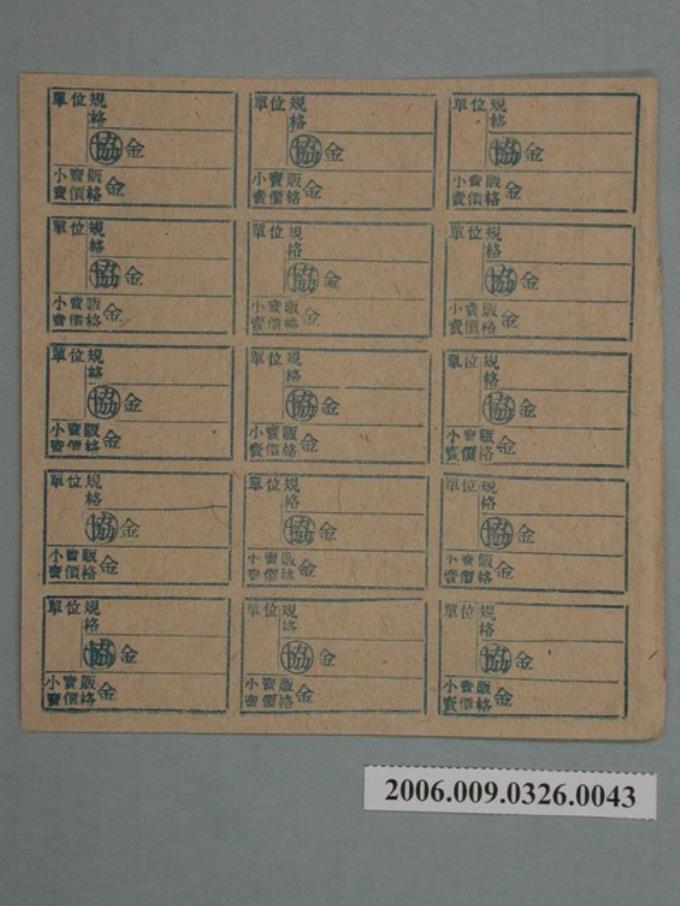 單位規
格
協 金
小賣販
賣價格 金
單位規
格
協 金
小賣販
賣價格 金
單位規
格
協 金
小賣販
賣價格 金
單位規
格
協 金
小賣販
賣價格 金
單位規
格
協 金
小賣販
賣價格 金
單位規
格
協 金
小賣販
賣價格 金
單位規
格
協 金
小賣販
賣價格 金
單位規
格
協 金
小賣販
賣價格 金
單位規
格
協 金
小賣販
賣價格 金
單位規
格
協 金
小賣販
賣價格 金
單位規
格
協 金
小賣販
賣價格 金
單位規
格
協 金
小賣販
賣價格 金
單位規
格
協 金
小賣販
賣價格 金
單位規
格
協 金
小賣販
賣價格 金
單位規
格
協 金
小賣販
賣價格 金
2006.009.0326.0043